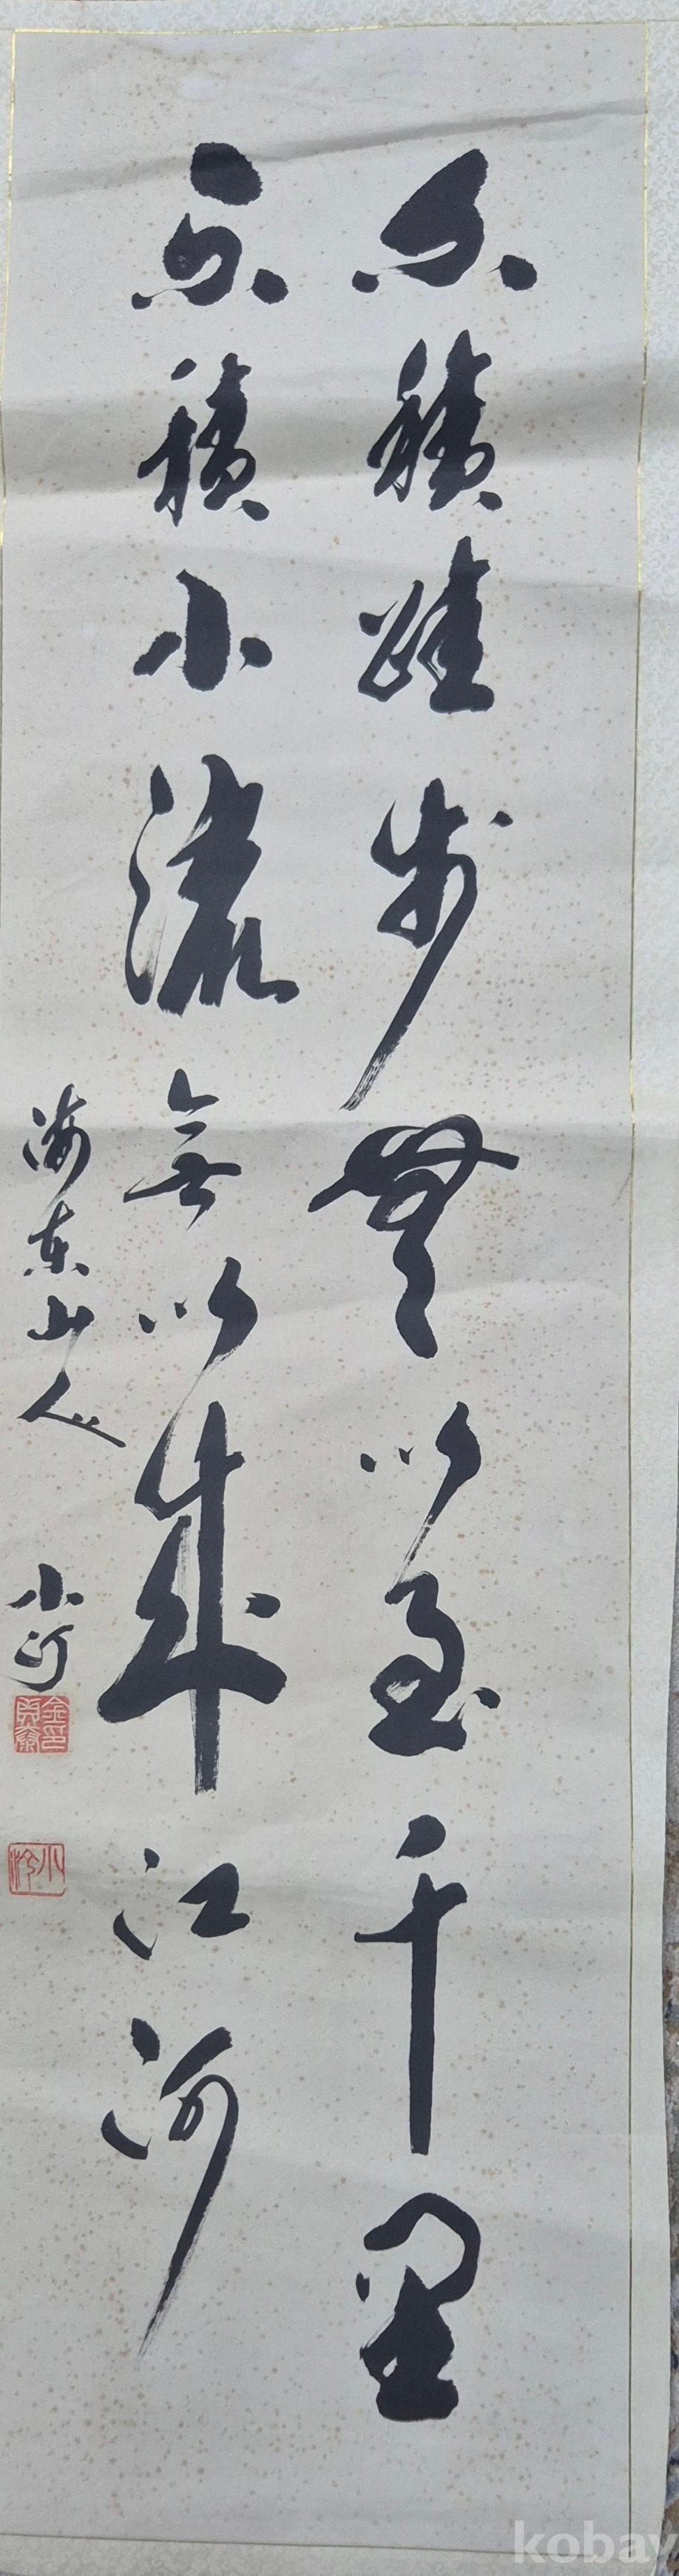 不積蹞步無以至千里
不積小流無以成江河
海東山人
小汀
kobay